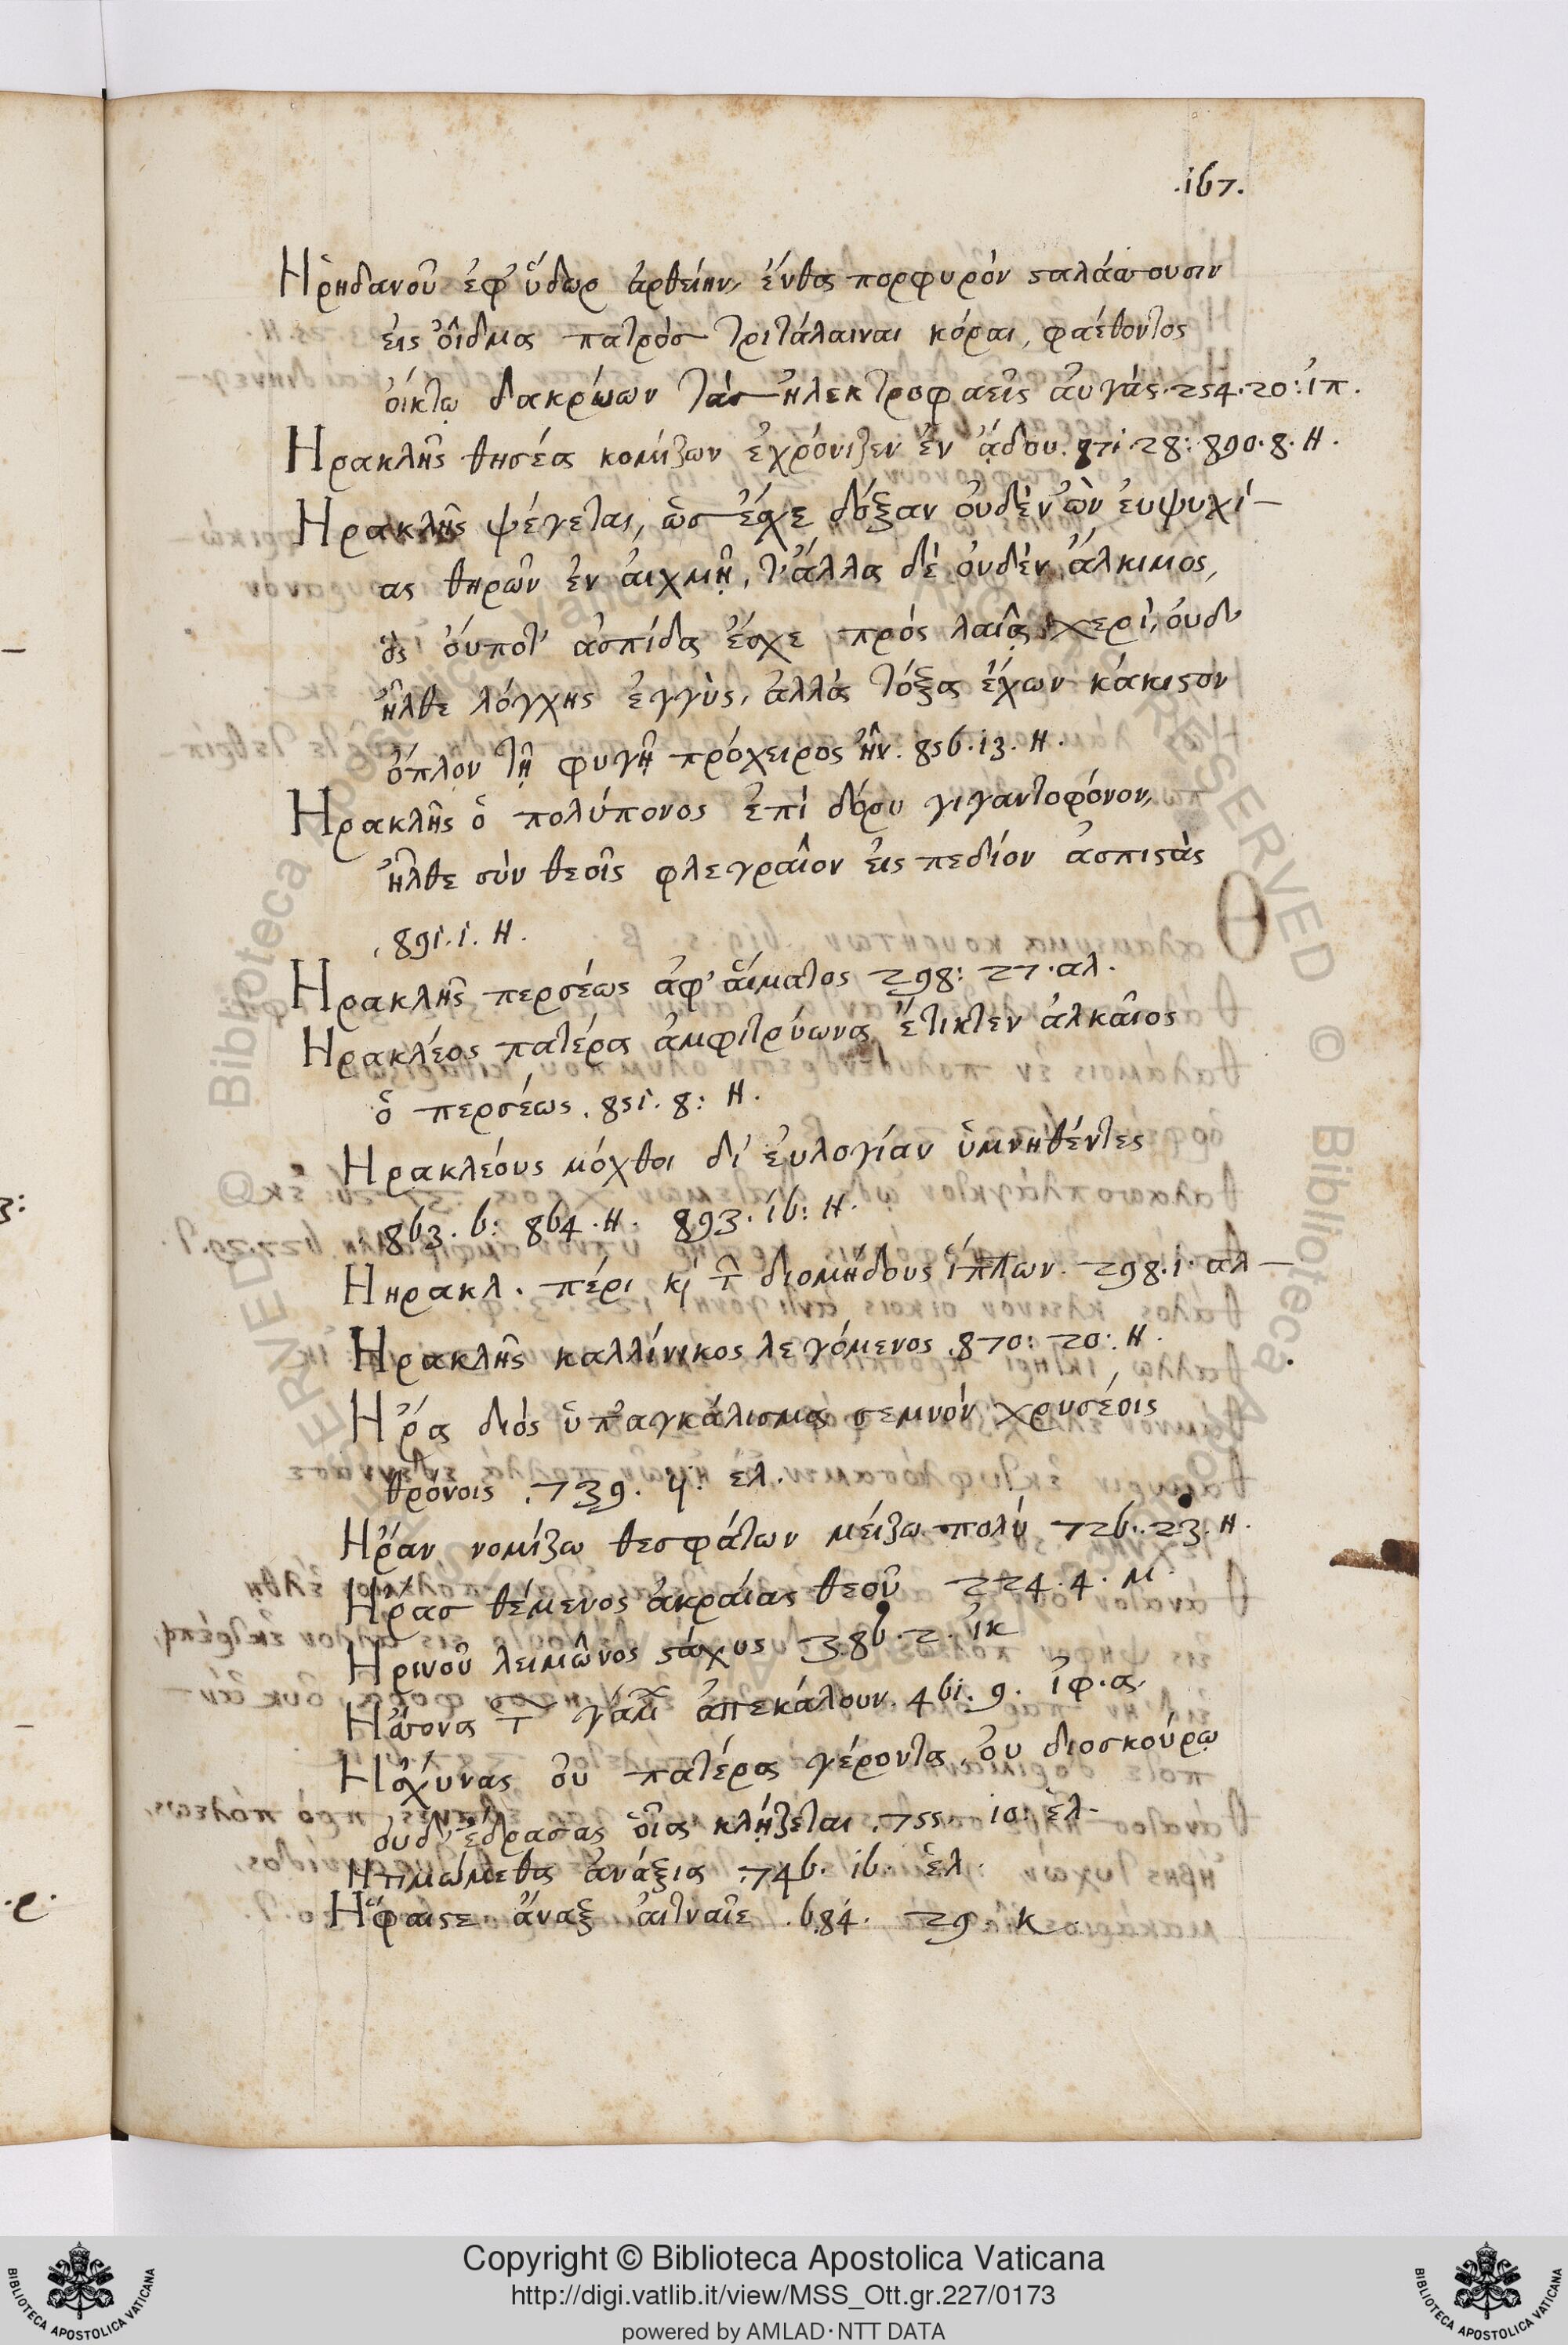 .167.
Ηρηδανοῦ ἐφ' ὕδωρ ἀρθείην, ἔνθα πορφυρόν ςαλάωουσιν
εἰς οἶδμα πατρόσ τριτάλαιναι κόραι, φαέθοντος
οἴκτῳ δακρύων τάσ ἠλεκτροφαεῖς αὐγάς. 254. 20: ἱπ.
Ηρακλῆς θησέα κομίζων ἐχρόνιζεν ἐν ᾅδου. 871. 28: 890. 8. Η.
Ηρακλῆς ψέγεται, ὡσ ἔσχε δόξαν οὐδὲν ὢν εὐψυχί-
ας θηρῶν ἐν αἰχμῇ, τ' ἄλλα δὲ οὐδὲν ἄλκιμος,
ὃς οὔποτ' ἀσπίδα ἔσχε πρός λαιᾷ χερὶ, οὐδ'
ἦλθε λόγχης ἐγγὺς, ἀλλὰ τόξα ἔχων κάκιςον
ὅπλον τῇ φυγῇ πρόχειρος ἦν. 856. 13. Η.
Ηρακλῆς ὁ πολύπονος ἐπὶ δόρυ γιγαντοφόνον,
ἦλθε σὺν θεοῖς φλεγραῖον εἰς πεδίον ἀσπιςὰς
. 891. 1. Η.
Θ
Ηρακλῆς περσέως ἀφ' αἵματος 298: 27. αλ.
Ηρακλέος πατέρα ἀμφιτρύωνα ἔτικτεν ἀλκαῖος
ὁ περσέως. 851. 8: Η.
Ηρακλέους μόχθοι δι' εὐλογίαν ὑμνηθέντες
863. 6: 864. Η. 893. 16: Η.
Ηηρακλ. πέρι κ τ διομήδους ἵππων. 298. 1. αλ-
Ηρακλῆς καλλίνικος λεγόμενος. 870: 20: Η.
Ηρα διός ὑπ' αγκάλισμα σεμνόν χρυσέοις
θρόνοις . 739. 4: ελ.
Ηραν νομίζω θεσφάτων μείζω πολύ 726. 23. Η.
Ηρασ θέμενος ἀκραίας θεοῦ 224. 4. Μ.
Ηρινοῦ λειμῶνος ςάχυς 386. 2. ἰκ
ἀπεκάλουν. 461. 9. ἰφ. α.
Ησχύνας οὐ πατέρα γέροντα, οὐ διοσκούρω
οὐδ' ἔδρασας οἷα κλῄζεται. 755. 10: ἑλ-
Ητιμώμεθα ἀνάξια .746. 16. ἑλ.
Ηφαιςε ἄναξ αἰτναῖε .684. 29 Κ.
Copyright © Biblioteca Apostolica Vaticana
http://digi.vatlib.it/view/MSS_Ott.gr.227/0173
powered by AMLAD·NTT DATA
BIBLIOTECA APOSTOLICA VATICANA
BIBLIOTECA APOSTOLICA VATICANA